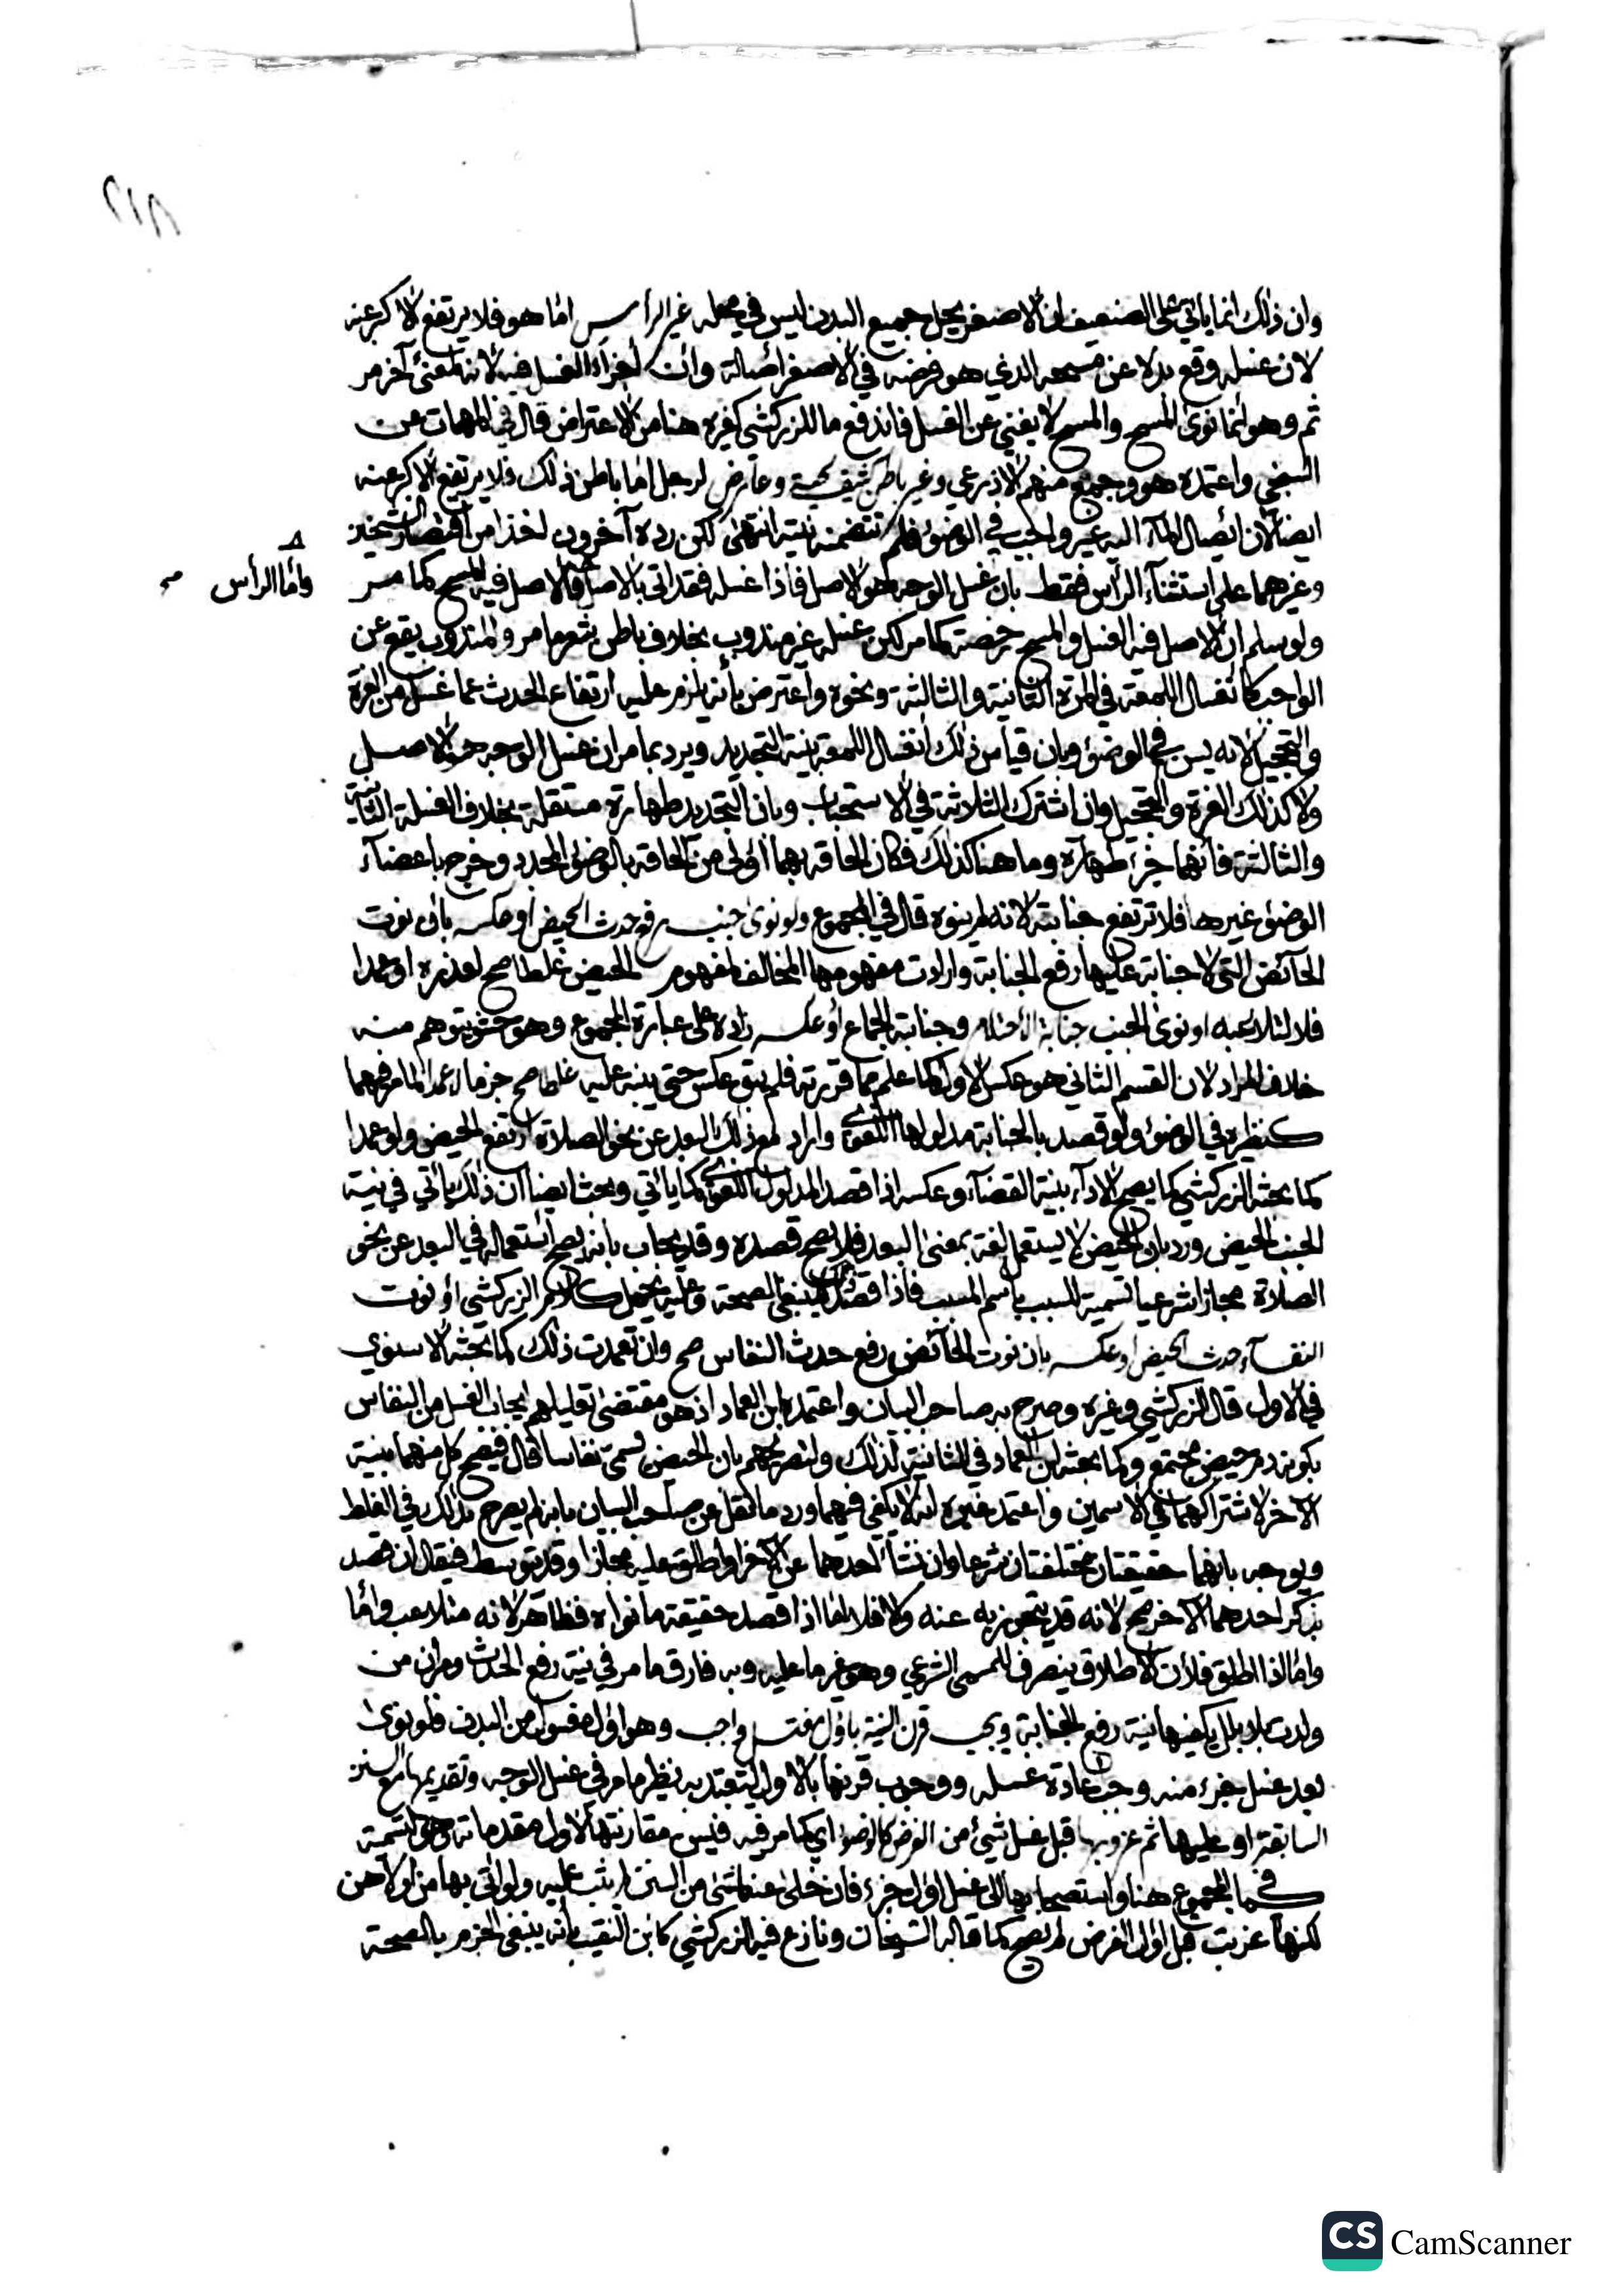 وان ذلك انما ياتي على الضعيف ان الاصغر يحل جميع البدن ليس في محله غير الرأس اما هو فلا يرتفع الاكبر عنه
لان غسله وقع بدلا عن مسحه الذي هو فرضه في الاصغر اصالة وان اجزاء الغسل فيه لانه لمعنى آخر مر
ثم وهو انما نوى المسح والمسح لا يغني عن الغسل فاندفع ما للزركشي كغيره هنا من الاعتراض قال في المهمات عن
السنجي واعتمده هو وجمع منهم الاذرعي وغير باطن كثيف لحية وعارض لرجل اما باطن ذلك فلا يرتفع الاكبر عنه
ايضا لان ايصال الماء اليه غير واجب في الوضوء فلم تتضمنه نيته انتهى لكن رده آخرون اخذا من اقتصار الشيخين
وغيرهما على استثناء الرأس فقط بان غسل الوجه هو الاصل فاذا غسله فقد اتى بالاصل فالاصل فيه المسح كما مر
واما الرأس صح
ولو سلم ان الاصل فيه الغسل والمسح رخصة كما مر لكن غسله غير مندوب بخلاف باطن شعر ما مر والمندوب يقع عن
الواجب كانغسال اللمعة في المرة الثانية والثالثة ونحوه واعترض بأنه يلزم عليه ارتفاع الحدث عما غسل من الغرة
والتحجيل لانه يسن في الوضوء وبان قياس ذلك انغسال اللمعة بنية التجديد ويرد بما مر ان غسل الوجه هو الاصل
ولا كذلك الغرة والتحجيل وان اشترك الثلاثة في الاستحباب وبان التجديد طهارة مستقلة بخلاف الغسلة الثانية
والثالثة فانهما جزء طهارة وما هنا كذلك فكان الحاقه بهما اولى من الحاقه بالوضوء المجدد وخرج باعضاء
الوضوء غيرها فلا ترتفع جنابته لانه لم ينوه قال في المجموع ولو نوى جنب رفع حدث الحيض او عكسه بان نوت
الحائض التي لا جنابة عليها رفع الجنابة وارادت مفهومها المخالف لمفهوم الحيض غلطا صح لعذره او عمدا
فلا لتلاعبه او نوى الجنب جنابة الاحتلام وجنابة الجماع او عكسه زاده على عبارة المجموع وهو حشو يتوهم منه
خلاف المراد لان القسم الثاني هو عكس الاول كما علم مما قررته فلم يبق عكس حتى ينبه عليه غلطا صح جزما لا عمدا لما مر فيهما
كنظيره في الوضوء ولو قصد بالجنابة مدلولها اللغوي واراد مع ذلك البعد عن نحو الصلاة ارتفع الحيض ولو عمدا
كما بحثه الزركشي كما يصح الاداء بنية القضاء وعكسه اذا قصد المدلول اللغوي كما ياتي وبحث ايضا ان ذلك ياتي في نية
الجنب الحيض ورد بان الحيض لا يستعمل لغة بمعنى البعد فلا يصح قصده وقد يجاب بانه يصح استعماله في البعد عن نحو
الصلاة مجازا شرعيا تسمية للسبب باسم المسبب فاذا قصد ذلك ينبغي الصحة وعليه يحمل كلام الزركشي او نوت
النفساء حدث الحيض او عكسه بان نوت الحائض رفع حدث النفاس صح وان تعمدت ذلك كما بحثه الاسنوي
في الاول قال الزركشي وغيره وصرح به صاحب البيان واعتمده ابن العماد اذ هو مقتضى تعليلهم ايجاب الغسل من النفاس
بكونه دم حيض مجتمع وكما بحثه ابن العماد في الثانية لذلك ولتصريحهم بان الحيض يسمى نفاسا قال فيصح كل منهما بنية
الآخر لاشتراكهما في الاسمين واعتمد غيره انه لا يكفي فيهما ورد ما نقل عن صاحب البيان بانه لم يصرح بذلك في الغلط
ويوجه بانهما حقيقتان مختلفتان شرعا وان نشأ احدهما عن الآخر او اطلق عليه مجازا وقد يتوسط فيقال ان قصد
بذكر احدهما الآخر صح لانه قد يتجوز به عنه والا فلا اما اذا قصد حقيقة ما نواه فظاهر لانه متلاعب واما
واما اذا اطلق فلأن الاطلاق ينصرف للمسمى الشرعي وهو غير ما عليه وبه فارق ما مر في نية رفع الحدث ومر ان من
ولدت بلا بلل يكفيها نية رفع الجنابة ويجب قرن النية باول مغتسل واجب وهو اول مغسول من البدن فلو نوى
بعد غسل جزء منه وجب اعادة غسله ووجوب قرنها بالاول ليعتد به نظير ما مر في غسل الوجه وتقديمها مع السنن
السابقة او عليها ثم عزوبها قبل غسل شيء من الفرض كالوضوء اي كما مر فيه فيسن مقارنتها لاول مقدماته وهي التسمية
كما في المجموع هنا واستصحابها الى غسل اول جزء فان خلى عنها شيء من السنن لم يثب عليه ولو اتى بها من اولاهن
لكنها عزبت قبل اول الفرض لم يصح كما قاله الشيخان ونازع فيه الزركشي كابن النقيب بأنه ينبغي الجزم بالصحة
CS CamScanner